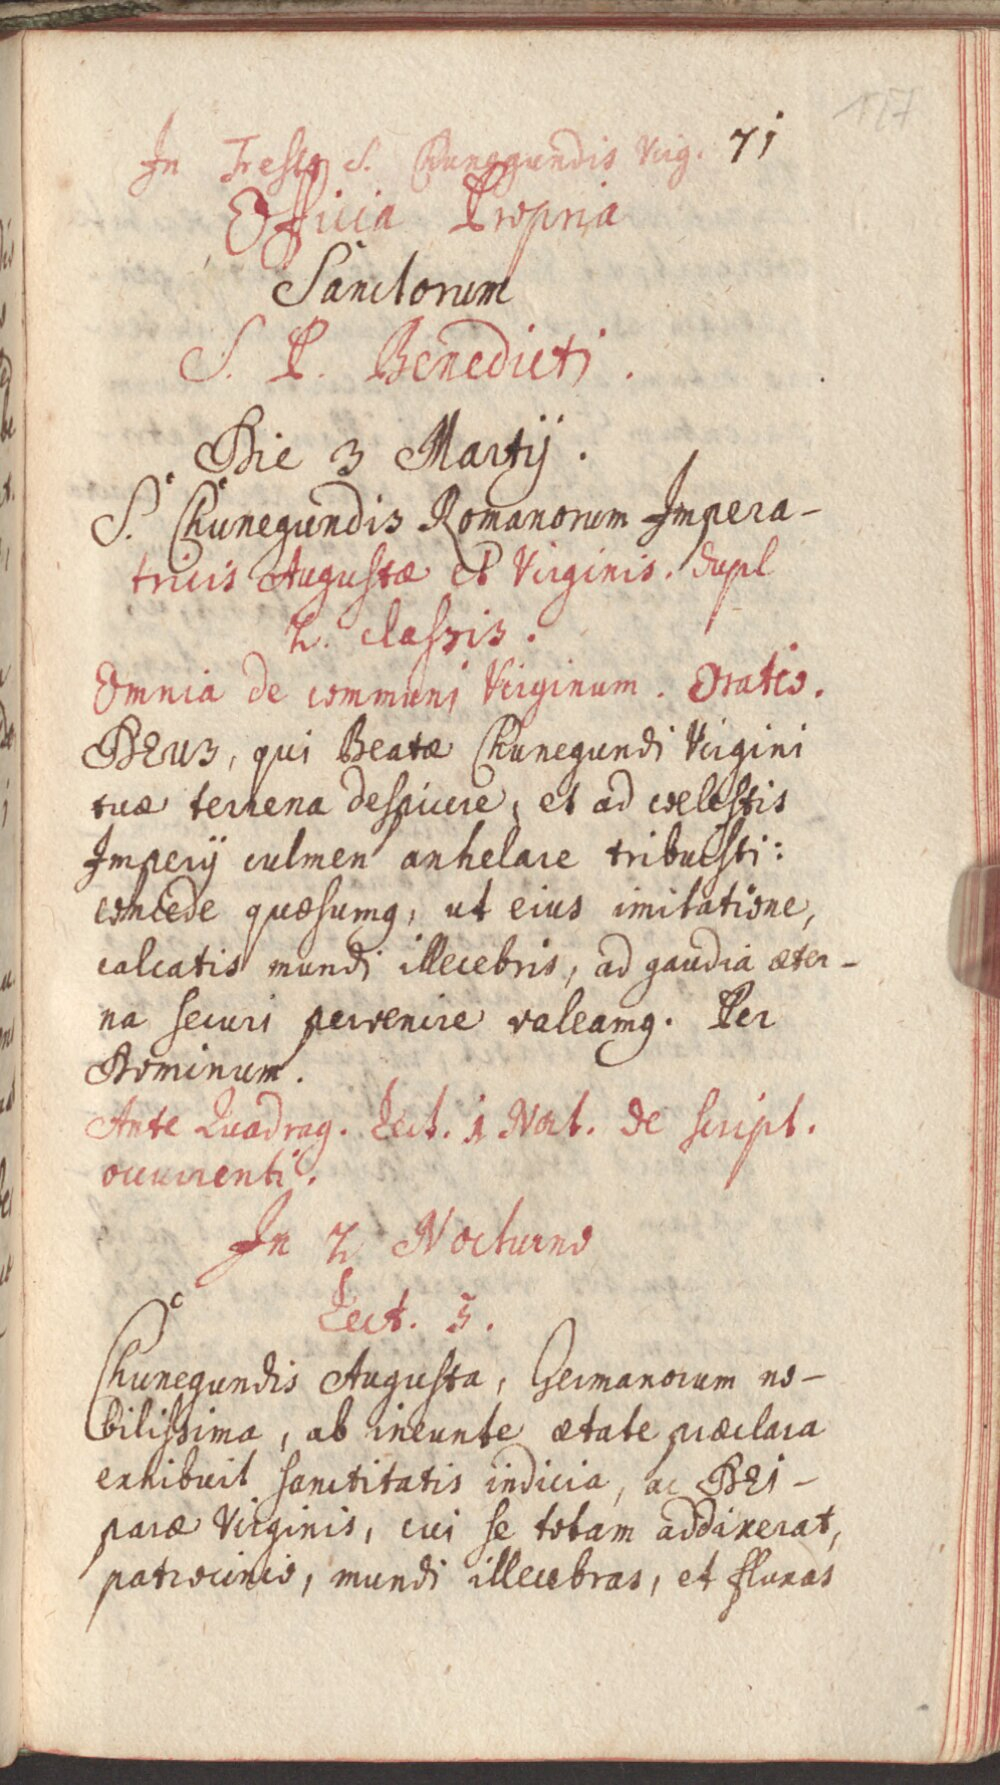 117
In Festo S. Chunegundis Virg. 71
Officia Propria
Sanctorum
S. P. Benedicti.
Die 3 Martij.
S. Chunegundis Romanorum Impera-
tricis Augustæ et Virginis. dupl
2. classis.
Omnia de communi Virginum. Oratio.
DEUS, qui Beatæ Chunegundi Virgini
tuæ terrena despicere, et ad coelestis
Imperij culmen anhelare tribuisti:
concede quæsumq, ut eius imitatione,
calcatis mundi illecebris, ad gaudia æter-
na securi pervenire valeamq. Per
Dominum.
Ante Quadrag. Lect. 1 Noct. de script.
occurrenti.
In 2 Nocturno
Lect. 5.
Chunegundis Augusta, Germanorum no-
bilissima, ab ineunte ætate præclara
exhibuit sanctitatis indicia, ac DEI-
paræ Virginis, cui se totam addixerat,
patrocinio, mundi illecebras, et fluxas